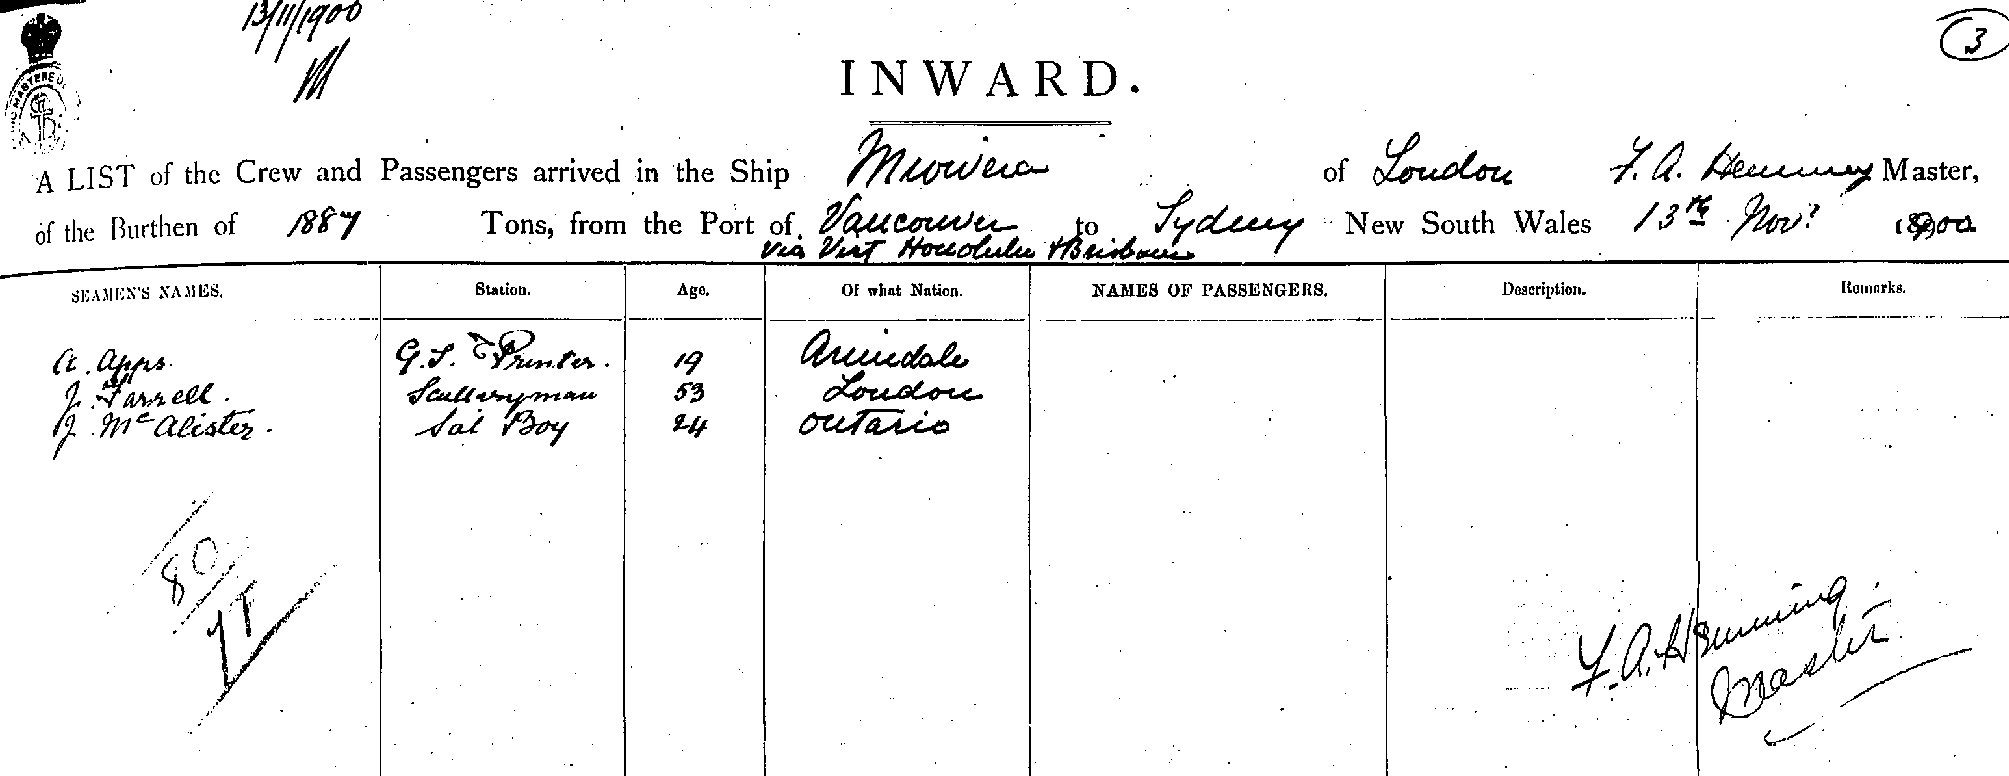 13/11/1900
3
INWARD.
A LIST of the Crew and Passengers arrived in the Ship Miowera of London F. A. Hemming Master,
of the Burthen of 1887 Tons, from the Port of Vancouver to Sydney New South Wales 13th Novr 1900
via Vict Honolulu & Brisbane
SEAMEN'S NAMES. Station. Age. Of what Nation. NAMES OF PASSENGERS. Description. Remarks.
A. Apps. G.S. & Printer. 19 Arundale
J. Farrell. Sculleryman 53 London
J. McAlister. Sal Boy 24 Ontario
80
F. A. Hemming
Master